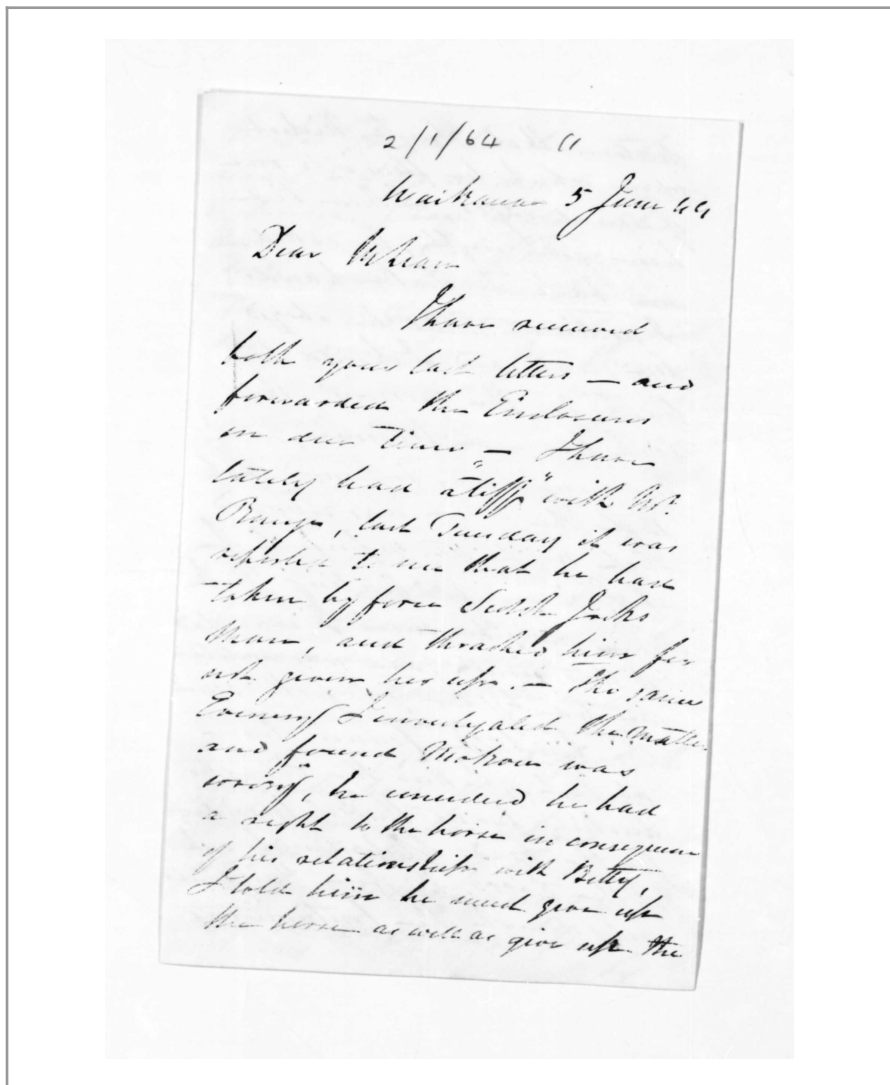 2/1/64
Waikanae 5 June 49
Dear McLean
I have received
both your last letters — and
forwarded the Enclosures
in due time — I have
lately had a "tiff" with Mr.
, last Tuesday it was
reported to me that he had
taken by force Scotch Jocks
Mare, and thrashed him for
not giving her up. — The same
Evening I investigated the matter
and found was
wrong, he considered he had
a right to the horse in consequence
of his relationship with Betty,
I told him he must give up
the horse as well as give up the